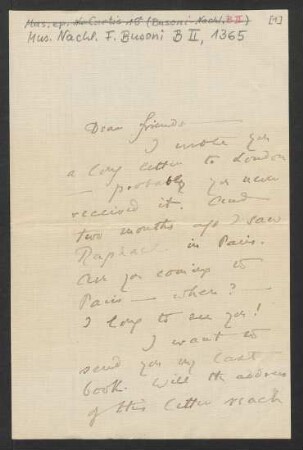 Mus. ep. N. Curtis 16 (Busoni-Nachl. B II) [1]
Mus. Nachl. F. Busoni B II, 1365
Dear friends –
I wrote you
a long letter to London
– probably you never
received it. And
two months ago I saw
Raphael in Paris.
Are you coming to
Paris – when?–
I long to see you!
I want to
send you my last
book. Will the address
of this letter reach